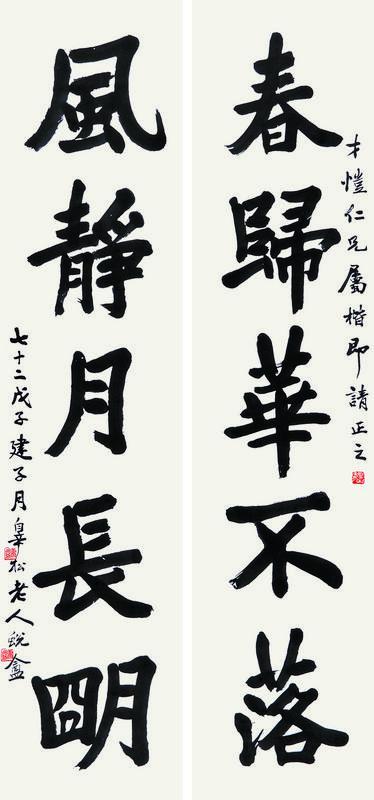 才愷仁兄屬楷即請正之
春歸華不落
風靜月長朙
七十二戊子建子月皋松老人蛻盦